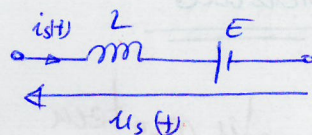 is(t) L E
us(t)